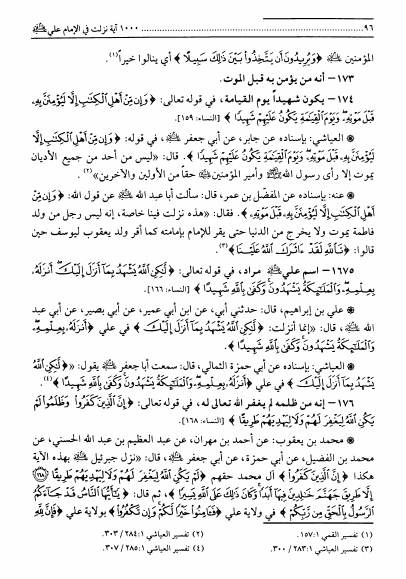 ٩٦ ........ ١٠٠٠ آية نزلت في الإمام علي
المؤمنين ﴿وَيُرِيدُونَ أَن يَتَّخِذُوا بَيْنَ ذَٰلِكَ سَبِيلًا﴾ أي ينالوا خيراً(١).
١٧٣- أنه من يؤمن به قبل الموت.
١٧٤- يكون شهيداً يوم القيامة، في قوله تعالى: ﴿وَإِن مِّنْ أَهْلِ الْكِتَابِ إِلَّا لَيُؤْمِنَنَّ بِهِ
قَبْلَ مَوْتِهِ وَيَوْمَ الْقِيَامَةِ يَكُونُ عَلَيْهِمْ شَهِيدًا﴾ [النساء: ١٥٩].
* العياشي: بإسناده عن جابر، عن أبي جعفر، في قوله: ﴿وَإِن مِّنْ أَهْلِ الْكِتَابِ إِلَّا
لَيُؤْمِنَنَّ بِهِ قَبْلَ مَوْتِهِ وَيَوْمَ الْقِيَامَةِ يَكُونُ عَلَيْهِمْ شَهِيدًا﴾. قال: «ليس من أحد من جميع الأديان
يموت إلا رأى رسول الله وأمير المؤمنين حقاً من الأولين والآخرين»(٢).
* عنه: بإسناده عن المفضّل بن عمر، قال: سألت أبا عبد الله عن قول الله: ﴿وَإِن مِّنْ
أَهْلِ الْكِتَابِ إِلَّا لَيُؤْمِنَنَّ بِهِ قَبْلَ مَوْتِهِ﴾. فقال: «هذه نزلت فينا خاصة، إنه ليس رجل من ولد
فاطمة يموت ولا يخرج من الدنيا حتى يقر للإمام بإمامته كما أقر ولد يعقوب ليوسف حين
قالوا: ﴿تَاللَّهِ لَقَدْ آثَرَكَ اللَّهُ عَلَيْنَا﴾»(٣).
١٦٧٥- اسم علي مراد، في قوله تعالى: ﴿لَّٰكِنِ اللَّهُ يَشْهَدُ بِمَا أَنزَلَ إِلَيْكَ أَنزَلَهُ
بِعِلْمِهِ وَالْمَلَائِكَةُ يَشْهَدُونَ وَكَفَىٰ بِاللَّهِ شَهِيدًا﴾ [النساء: ١٦٦].
علي بن إبراهيم، قال: حدثني أبي، عن ابن أبي عمير، عن أبي بصير، عن أبي عبد
الله، قال: «إنما أنزلت: ﴿لَّٰكِنِ اللَّهُ يَشْهَدُ بِمَا أَنزَلَ إِلَيْكَ﴾ في علي ﴿أَنزَلَهُ بِعِلْمِهِ
وَالْمَلَائِكَةُ يَشْهَدُونَ وَكَفَىٰ بِاللَّهِ شَهِيدًا﴾.
* العياشي: بإسناده عن أبي حمزة الثمالي، قال: سمعت أبا جعفر يقول: «﴿لَّٰكِنِ اللَّهُ
يَشْهَدُ بِمَا أَنزَلَ إِلَيْكَ﴾ في علي ﴿أَنزَلَهُ بِعِلْمِهِ وَالْمَلَائِكَةُ يَشْهَدُونَ وَكَفَىٰ بِاللَّهِ شَهِيدًا﴾»(٤).
١٧٦- إنه من ظلمه لم يغفر الله تعالى له، في قوله تعالى: ﴿إِنَّ الَّذِينَ كَفَرُوا وَظَلَمُوا لَمْ
يَكُنِ اللَّهُ لِيَغْفِرَ لَهُمْ وَلَا لِيَهْدِيَهُمْ طَرِيقًا﴾ [النساء: ١٦٨].
* محمد بن يعقوب: عن أحمد بن مهران، عن عبد العظيم بن عبد الله الحسني، عن
محمد بن الفضيل، عن أبي حمزة، عن أبي جعفر، قال: «نزل جبرئيل بهذه الآية
هكذا ﴿إِنَّ الَّذِينَ كَفَرُوا﴾ آل محمد حقهم ﴿لَمْ يَكُنِ اللَّهُ لِيَغْفِرَ لَهُمْ وَلَا لِيَهْدِيَهُمْ طَرِيقًا (١٦٨)
إِلَّا طَرِيقَ جَهَنَّمَ خَالِدِينَ فِيهَا أَبَدًا وَكَانَ ذَٰلِكَ عَلَى اللَّهِ يَسِيرًا﴾، ثم قال: ﴿يَا أَيُّهَا النَّاسُ قَدْ جَاءَكُمُ
الرَّسُولُ بِالْحَقِّ مِن رَّبِّكُمْ﴾ في ولاية علي ﴿فَآمِنُوا خَيْرًا لَّكُمْ وَإِن تَكْفُرُوا﴾ بولاية علي ﴿فَإِنَّ لِلَّهِ
(١) تفسير القمي ١: ١٥٧. (٢) تفسير العياشي ١: ٢٨٤/ ٣٠٣.
(٣) تفسير العياشي ١: ٢٨٣/ ٣٠٠. (٤) تفسير العياشي ١: ٢٨٥/ ٣٠٧.